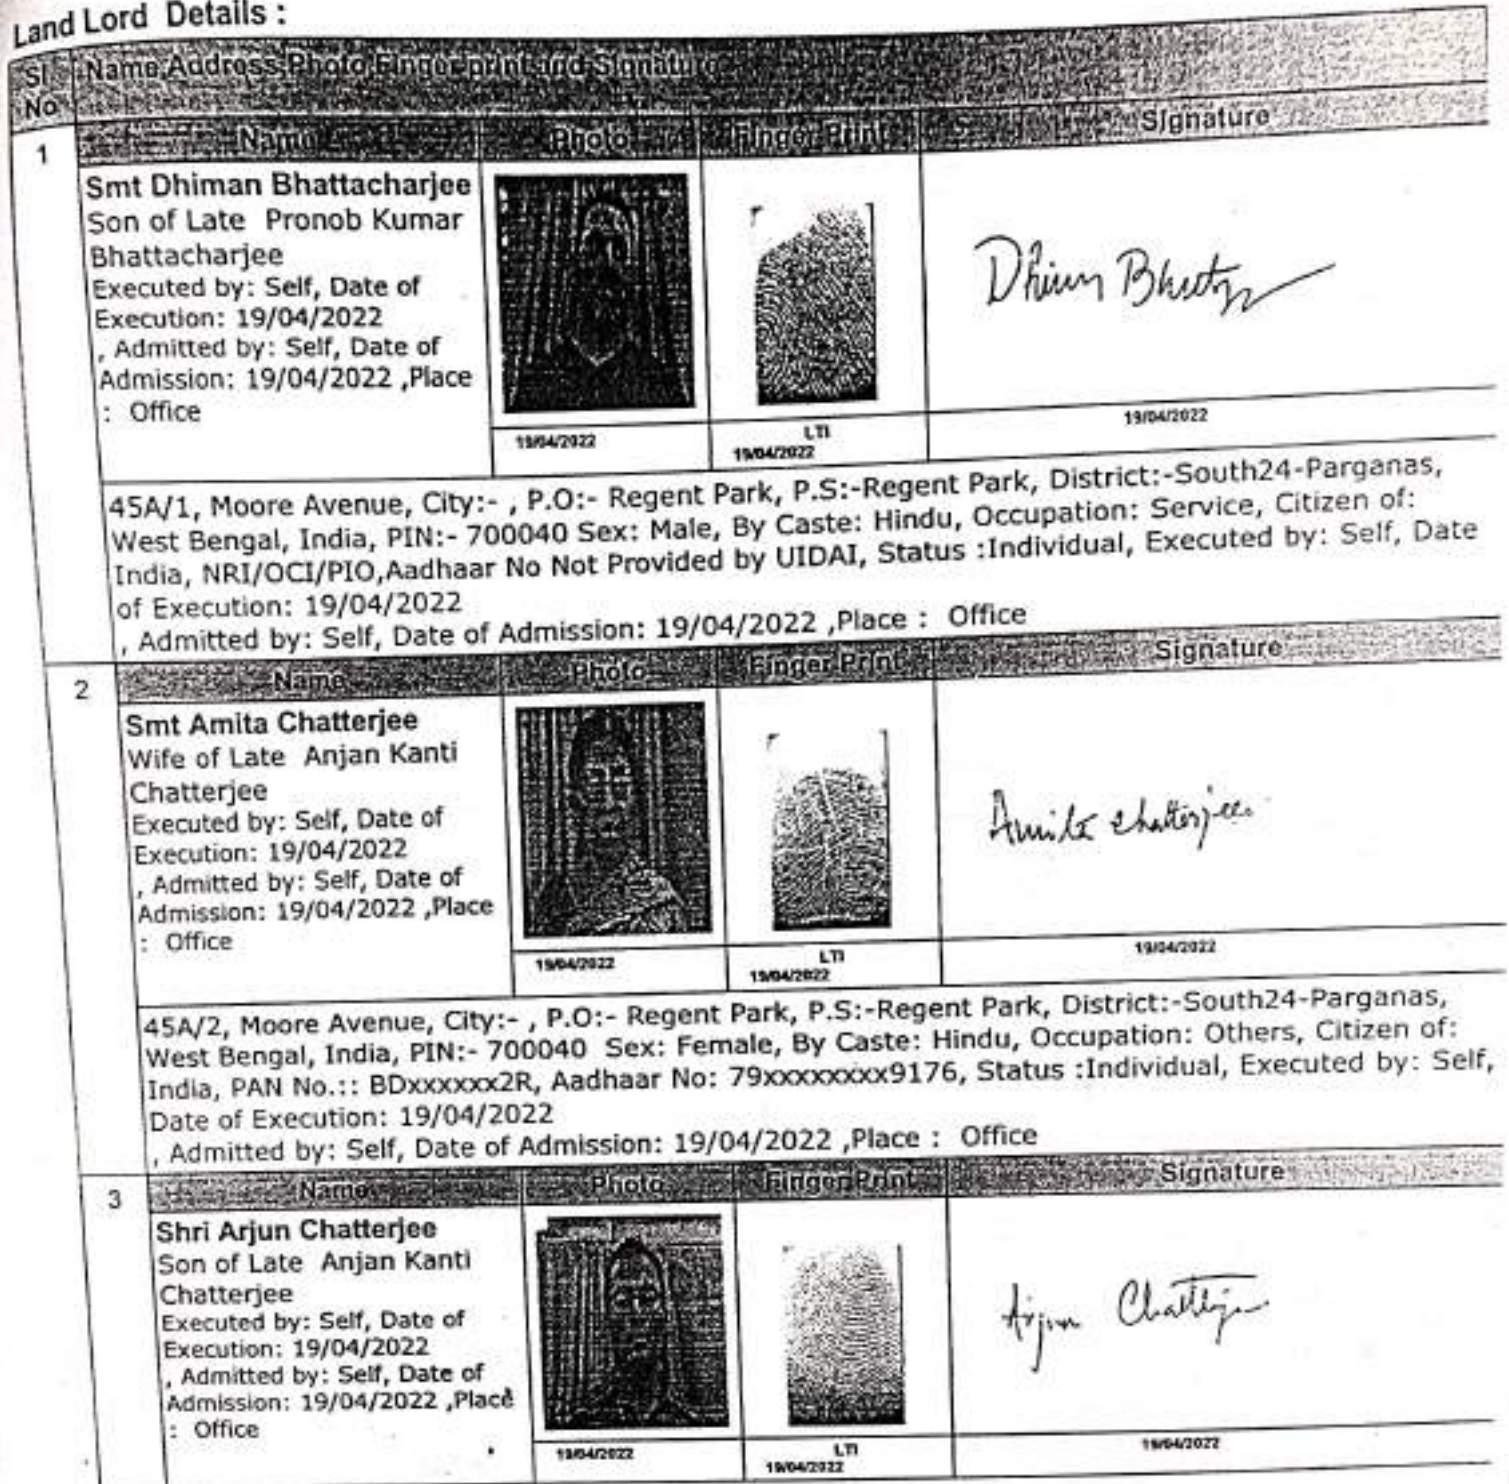 Land Lord Details :
Sl No Name,Address,Photo,Finger print and Signature
1 Name Photo Finger Print Signature
Smt Dhiman Bhattacharjee
Son of Late Pronob Kumar
Bhattacharjee
Executed by: Self, Date of
Execution: 19/04/2022
, Admitted by: Self, Date of
Admission: 19/04/2022 ,Place
: Office
19/04/2022 LTI 19/04/2022 19/04/2022
45A/1, Moore Avenue, City:- , P.O:- Regent Park, P.S:-Regent Park, District:-South24-Parganas,
West Bengal, India, PIN:- 700040 Sex: Male, By Caste: Hindu, Occupation: Service, Citizen of:
India, NRI/OCI/PIO,Aadhaar No Not Provided by UIDAI, Status :Individual, Executed by: Self, Date
of Execution: 19/04/2022
, Admitted by: Self, Date of Admission: 19/04/2022 ,Place : Office
2 Name Photo Finger Print Signature
Smt Amita Chatterjee
Wife of Late Anjan Kanti
Chatterjee
Executed by: Self, Date of
Execution: 19/04/2022
, Admitted by: Self, Date of
Admission: 19/04/2022 ,Place
: Office
Amita Chatterjee
19/04/2022 LTI 19/04/2022 19/04/2022
45A/2, Moore Avenue, City:- , P.O:- Regent Park, P.S:-Regent Park, District:-South24-Parganas,
West Bengal, India, PIN:- 700040 Sex: Female, By Caste: Hindu, Occupation: Others, Citizen of:
India, PAN No.:: BDxxxxxx2R, Aadhaar No: 79xxxxxxxx9176, Status :Individual, Executed by: Self,
Date of Execution: 19/04/2022
, Admitted by: Self, Date of Admission: 19/04/2022 ,Place : Office
3 Name Photo Finger Print Signature
Shri Arjun Chatterjee
Son of Late Anjan Kanti
Chatterjee
Executed by: Self, Date of
Execution: 19/04/2022
, Admitted by: Self, Date of
Admission: 19/04/2022 ,Place
: Office
Arjun Chatterjee
19/04/2022 LTI 19/04/2022 19/04/2022